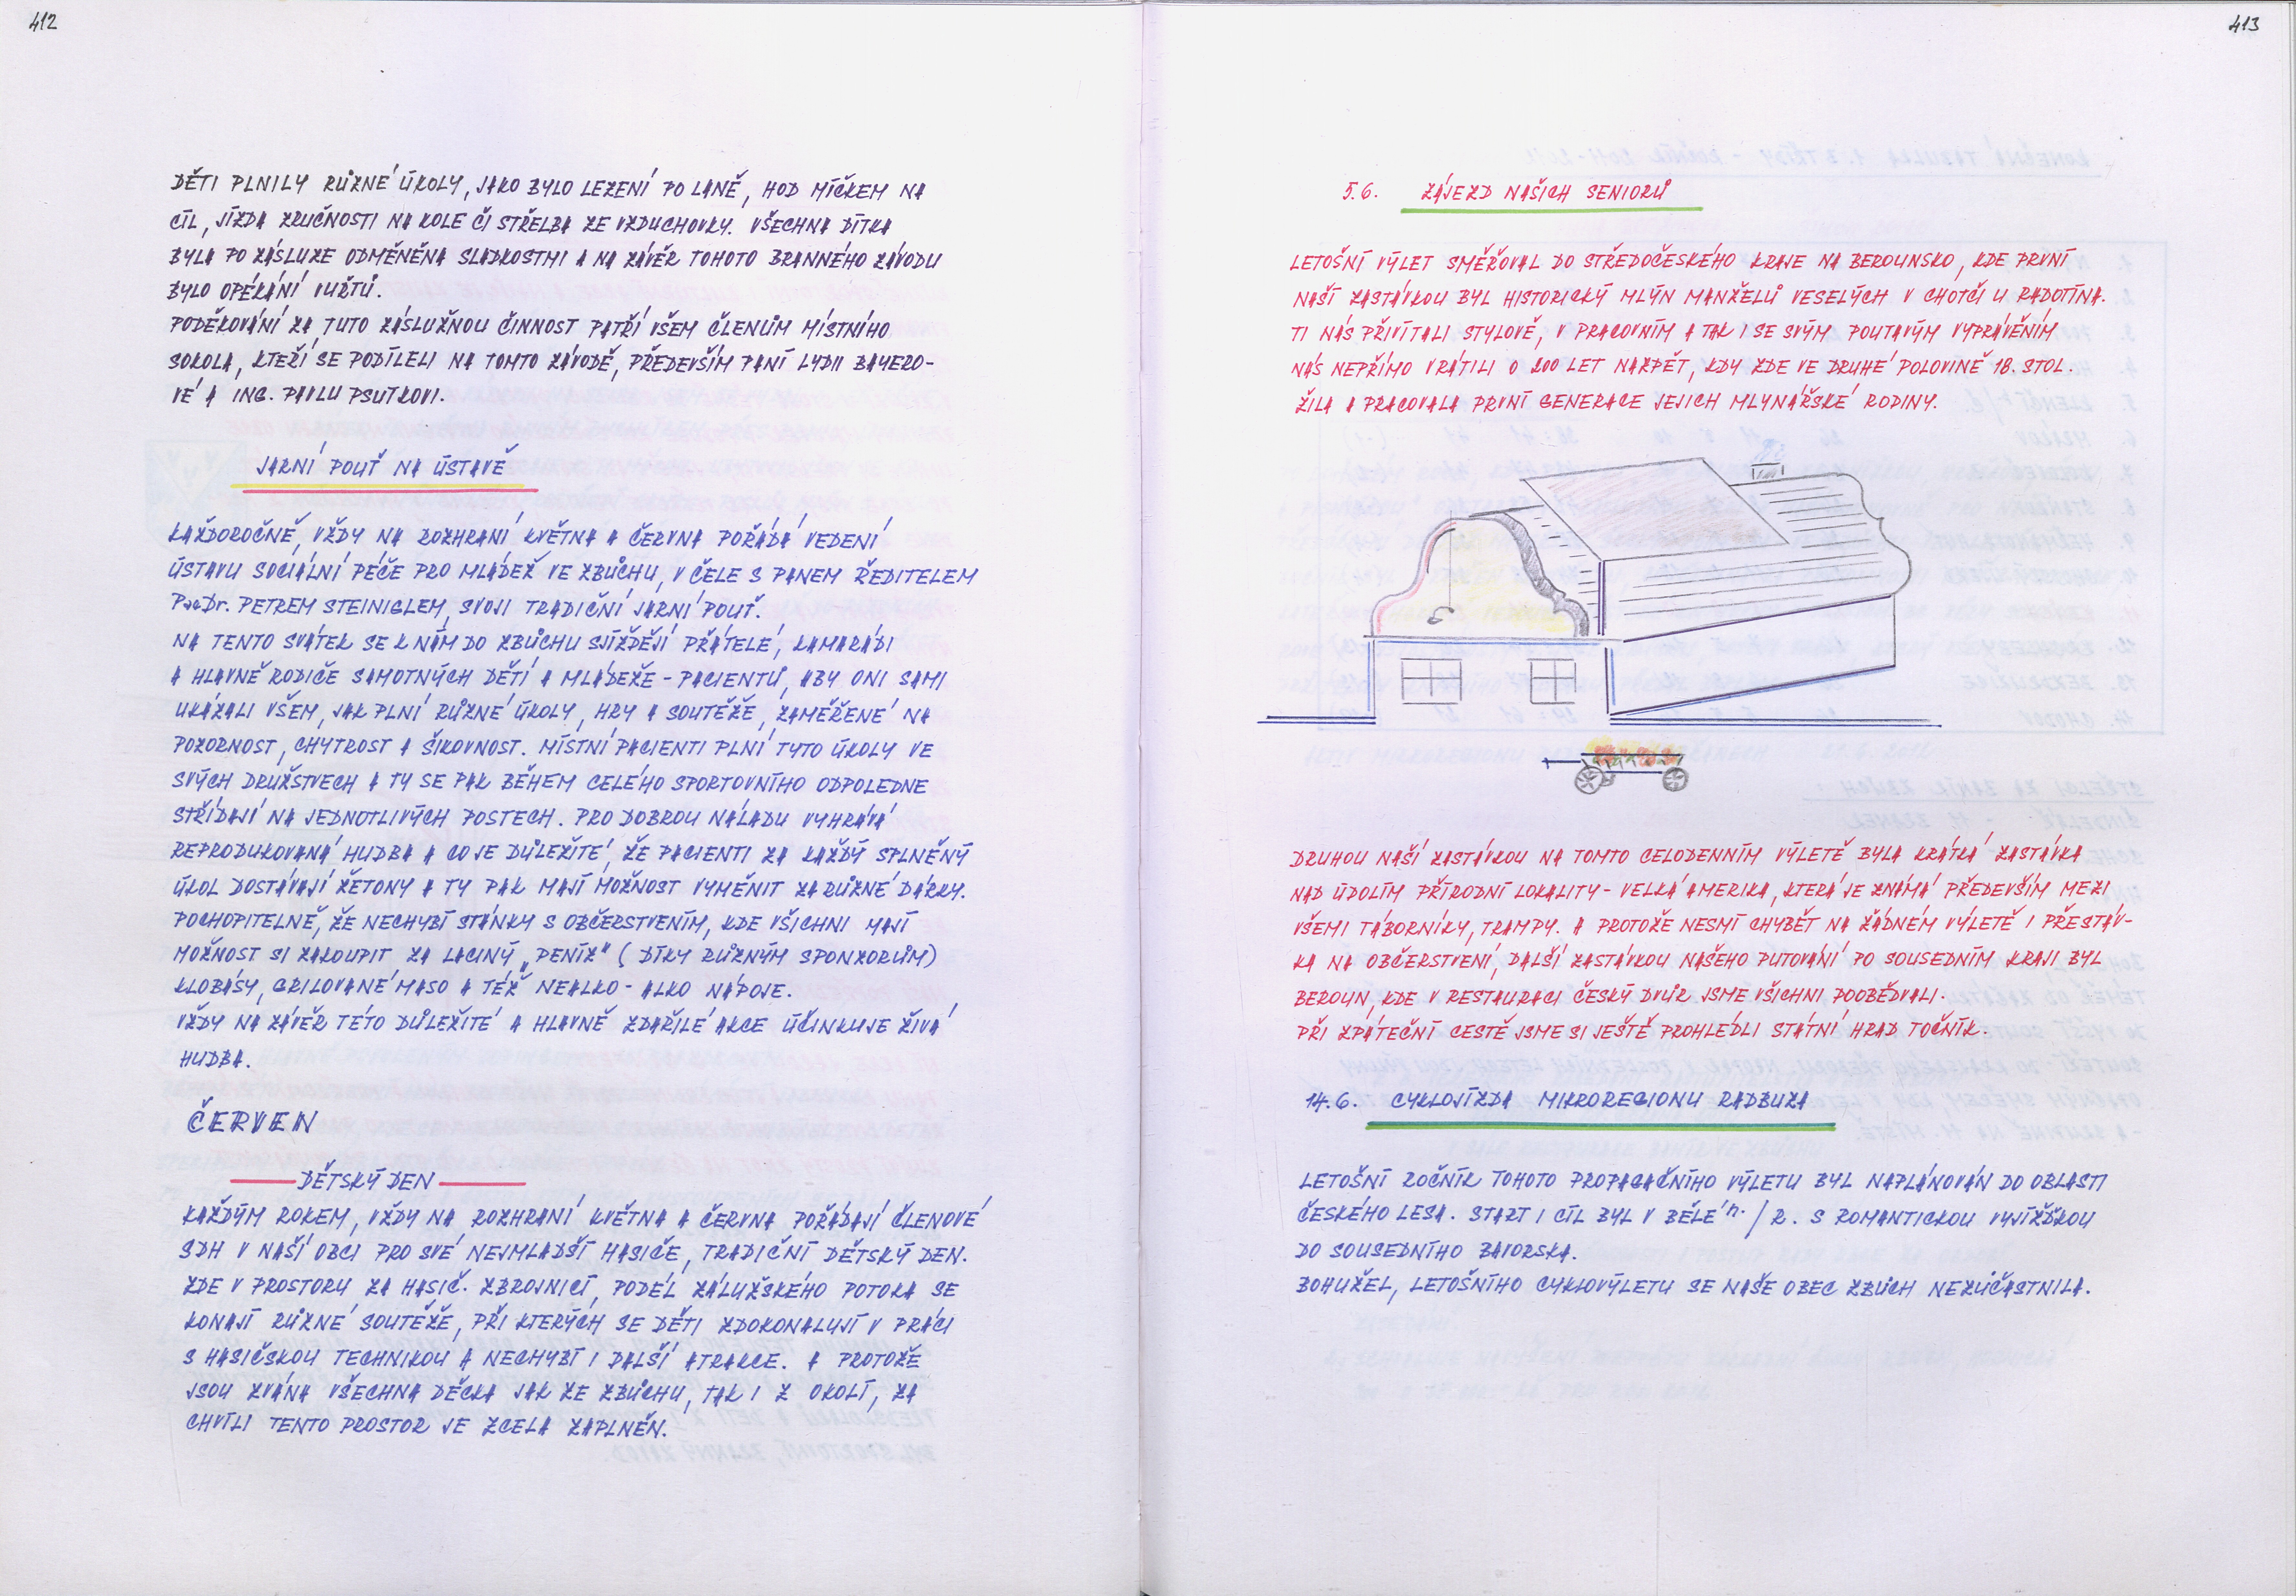 412
DĚTI PLNILY RŮZNÉ ÚKOLY, JAKO BYLO LEZENÍ PO LANĚ, HOD MÍČKEM NA
CÍL, JÍZDA ZRUČNOSTI NA KOLE ČI STŘELBA ZE VZDUCHOVKY. VŠECHNA DÍTKA
BYLA PO ZÁSLUZE ODMĚNĚNA SLADKOSTMI A NA ZÁVĚR TOHOTO BRANNÉHO ZÁVODU
BYLO OPÉKÁNÍ VUŘTŮ.
PODĚKOVÁNÍ ZA TUTO ZÁSLUŽNOU ČINNOST PATŘÍ VŠEM ČLENŮM MÍSTNÍHO
SOKOLA, KTEŘÍ SE PODÍLELI NA TOMTO ZÁVODĚ, PŘEDEVŠÍM PANÍ LYDII BAYERO-
VÉ A ING. PAVLU PSUTKOVI.
JARNÍ POUŤ NA ÚSTAVĚ
KAŽDOROČNĚ, VŽDY NA ROZHRANÍ KVĚTNA A ČERVNA POŘÁDÁ VEDENÍ
ÚSTAVU SOCIÁLNÍ PÉČE PRO MLÁDEŽ VE ZBŮCHU, V ČELE S PANEM ŘEDITELEM
PaeDr. PETREM STEINIGLEM, SVOJI TRADIČNÍ JARNÍ POUŤ.
NA TENTO SVÁTEK SE K NÍM DO ZBŮCHU SJÍŽDĚJÍ PŘÁTELÉ, KAMARÁDI
A HLAVNĚ RODIČE SAMOTNÝCH DĚTÍ A MLÁDEŽE - PACIENTŮ, ABY ONI SAMI
UKÁZALI VŠEM, JAK PLNÍ RŮZNÉ ÚKOLY, HRY A SOUTĚŽE, ZAMĚŘENÉ NA
POZORNOST, CHYTROST A ŠIKOVNOST. MÍSTNÍ PACIENTI PLNÍ TYTO ÚKOLY VE
SVÝCH DRUŽSTVECH A TY SE PAK BĚHEM CELÉHO SPORTOVNÍHO ODPOLEDNE
STŘÍDAJÍ NA JEDNOTLIVÝCH POSTECH. PRO DOBROU NÁLADU VYHRÁVÁ
REPRODUKOVANÁ HUDBA A CO JE DŮLEŽITÉ, ŽE PACIENTI ZA KAŽDÝ SPLNĚNÝ
ÚKOL DOSTÁVAJÍ ŽETONY A TY PAK MAJÍ MOŽNOST VYMĚNIT ZA RŮZNÉ DÁRKY.
POCHOPITELNĚ, ŽE NECHYBÍ STÁNKY S OBČERSTVENÍM, KDE VŠICHNI MAJÍ
MOŽNOST SI ZAKOUPIT ZA LACINÝ „PENÍZ" (DÍKY RŮZNÝM SPONZORŮM)
KLOBÁSY, GRILOVANÉ MASO A TÉŽ NEALKO - ALKO NÁPOJE.
VŽDY NA ZÁVĚR TÉTO DŮLEŽITÉ A HLAVNĚ ZDAŘILÉ AKCE ÚČINKUJE ŽIVÁ
HUDBA.
ČERVEN
DĚTSKÝ DEN
KAŽDÝM ROKEM, VŽDY NA ROZHRANÍ KVĚTNA A ČERVNA POŘÁDAJÍ ČLENOVÉ
SDH V NAŠÍ OBCI PRO SVÉ NEJMLADŠÍ HASIČE, TRADIČNÍ DĚTSKÝ DEN.
ZDE V PROSTORU ZA HASIČ. ZBROJNICÍ, PODÉL ZÁLUŽSKÉHO POTOKA SE
KONAJÍ RŮZNÉ SOUTĚŽE, PŘI KTERÝCH SE DĚTI ZDOKONALUJÍ V PRÁCI
S HASIČSKOU TECHNIKOU A NECHYBÍ I DALŠÍ ATRAKCE. A PROTOŽE
JSOU ZVÁNA VŠECHNA DĚCKA JAK ZE ZBŮCHU, TAK I Z OKOLÍ, ZA
CHVÍLI TENTO PROSTOR JE ZCELA ZAPLNĚN.
413
5.6. ZÁJEZD NAŠICH SENIORŮ
LETOŠNÍ VÝLET SMĚŘOVAL DO STŘEDOČESKÉHO KRAJE NA BEROUNSKO, KDE PRVNÍ
NAŠÍ ZASTÁVKOU BYL HISTORICKÝ MLÝN MANŽELŮ VESELÝCH V CHOTČI U RADOTÍNA.
TI NÁS PŘIVÍTALI STYLOVĚ, V PRACOVNÍM A TAK I SE SVÝM POUTAVÝM VYPRÁVĚNÍM
NÁS NEPŘÍMO VRÁTILI O 200 LET NAZPĚT, KDY ZDE VE DRUHÉ POLOVINĚ 18. STOL.
ŽILA A PRACOVALA PRVNÍ GENERACE JEJICH MLYNÁŘSKÉ RODINY.
DRUHOU NAŠÍ ZASTÁVKOU NA TOMTO CELODENNÍM VÝLETĚ BYLA KRÁTKÁ ZASTÁVKA
NAD ÚDOLÍM PŘÍRODNÍ LOKALITY - VELKÁ AMERIKA, KTERÁ JE ZNÁMÁ PŘEDEVŠÍM MEZI
VŠEMI TÁBORNÍKY, TRAMPY. A PROTOŽE NESMÍ CHYBĚT NA ŽÁDNÉM VÝLETĚ I PŘESTÁV-
KA NA OBČERSTVENÍ, DALŠÍ ZASTÁVKOU NAŠEHO PUTOVÁNÍ PO SOUSEDNÍM KRAJI BYL
BEROUN, KDE V RESTAURACI ČESKÝ DVŮR JSME VŠICHNI POOBĚDVALI.
PŘI ZPÁTEČNÍ CESTĚ JSME SI JEŠTĚ PROHLÉDLI STÁTNÍ HRAD TOČNÍK.
14.6. CYKLOJÍZDA MIKROREGIONU RADBUZA
LETOŠNÍ ROČNÍK TOHOTO PROPAGAČNÍHO VÝLETU BYL NAPLÁNOVÁN DO OBLASTI
ČESKÉHO LESA. START I CÍL BYL V BĚLÉ n./R. S ROMANTICKOU VYJÍŽĎKOU
DO SOUSEDNÍHO BAVORSKA.
BOHUŽEL, LETOŠNÍHO CYKLOVÝLETU SE NAŠE OBEC ZBŮCH NEZÚČASTNILA.